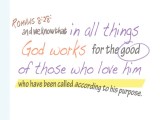 ROMANS 8:28
and we know that in all things
God works for the good
of those who love him
who have been called according to his purpose.